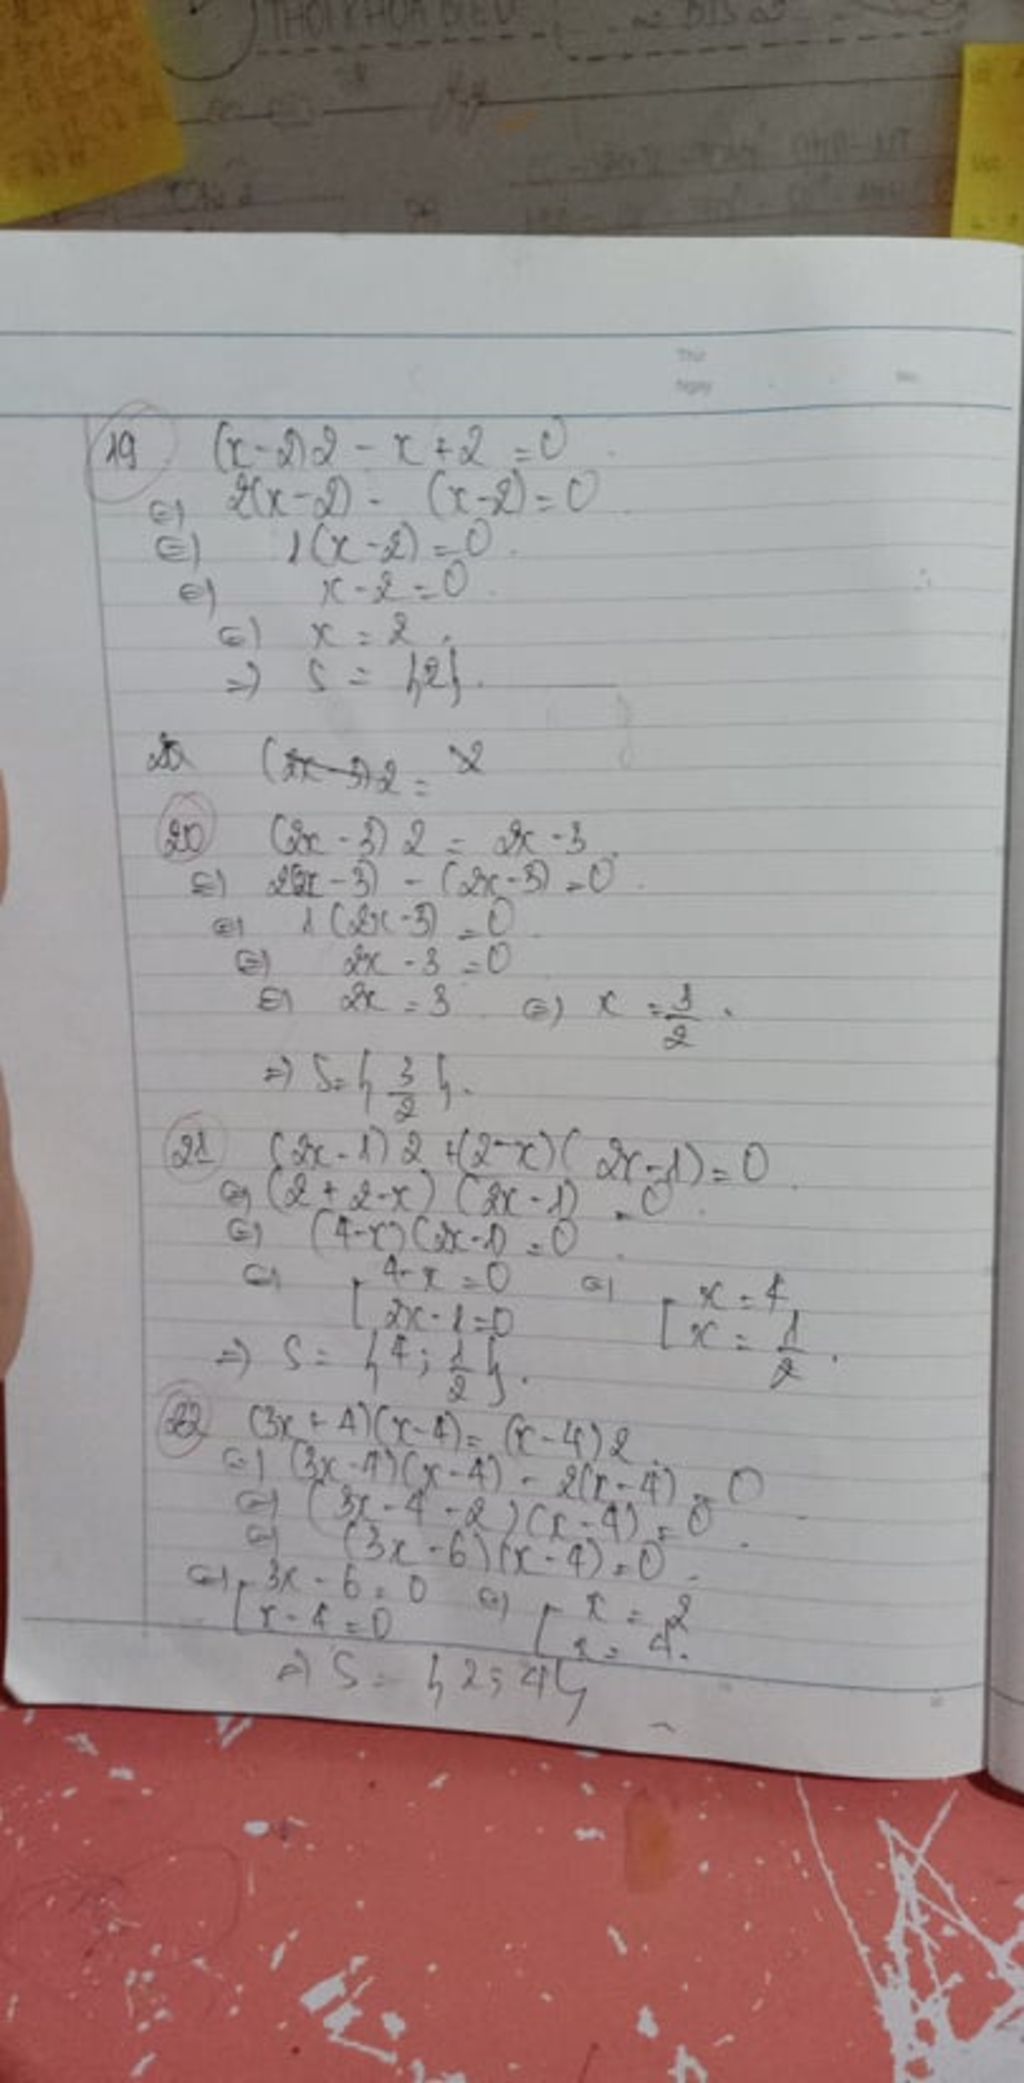 THỜI KHÓA BIỂU
Thứ
Ngày
19 (x-2)2 - x + 2 = 0
⇔ 2(x-2) - (x-2) = 0
⇔ 1(x-2) = 0
⇔ x-2 = 0
⇔ x = 2.
⇒ S = {2}.
20 (2x-3)2 = 2x-3.
⇔ 2(2x-3) - (2x-3) = 0
⇔ 1(2x-3) = 0
⇔ 2x-3 = 0
⇔ 2x = 3 ⇔ x = 3/2.
⇒ S = {3/2}.
21 (2x-1)2 + (2-x)(2x-1) = 0
⇔ (2+2-x)(2x-1) = 0.
⇔ (4-x)(2x-1) = 0.
⇔ [ 4-x = 0 ⇔ [ x = 4
2x-1 = 0 x = 1/2.
⇒ S = {4; 1/2}.
22 (3x+4)(x-4) = (x-4)2.
⇔ (3x-4)(x-4) - 2(x-4) = 0
⇔ (3x-4-2)(x-4) = 0
⇔ (3x-6)(x-4) = 0.
⇔ [ 3x-6 = 0 ⇔ [ x = 2
x-4 = 0 x = 4.
⇒ S = {2; 4}